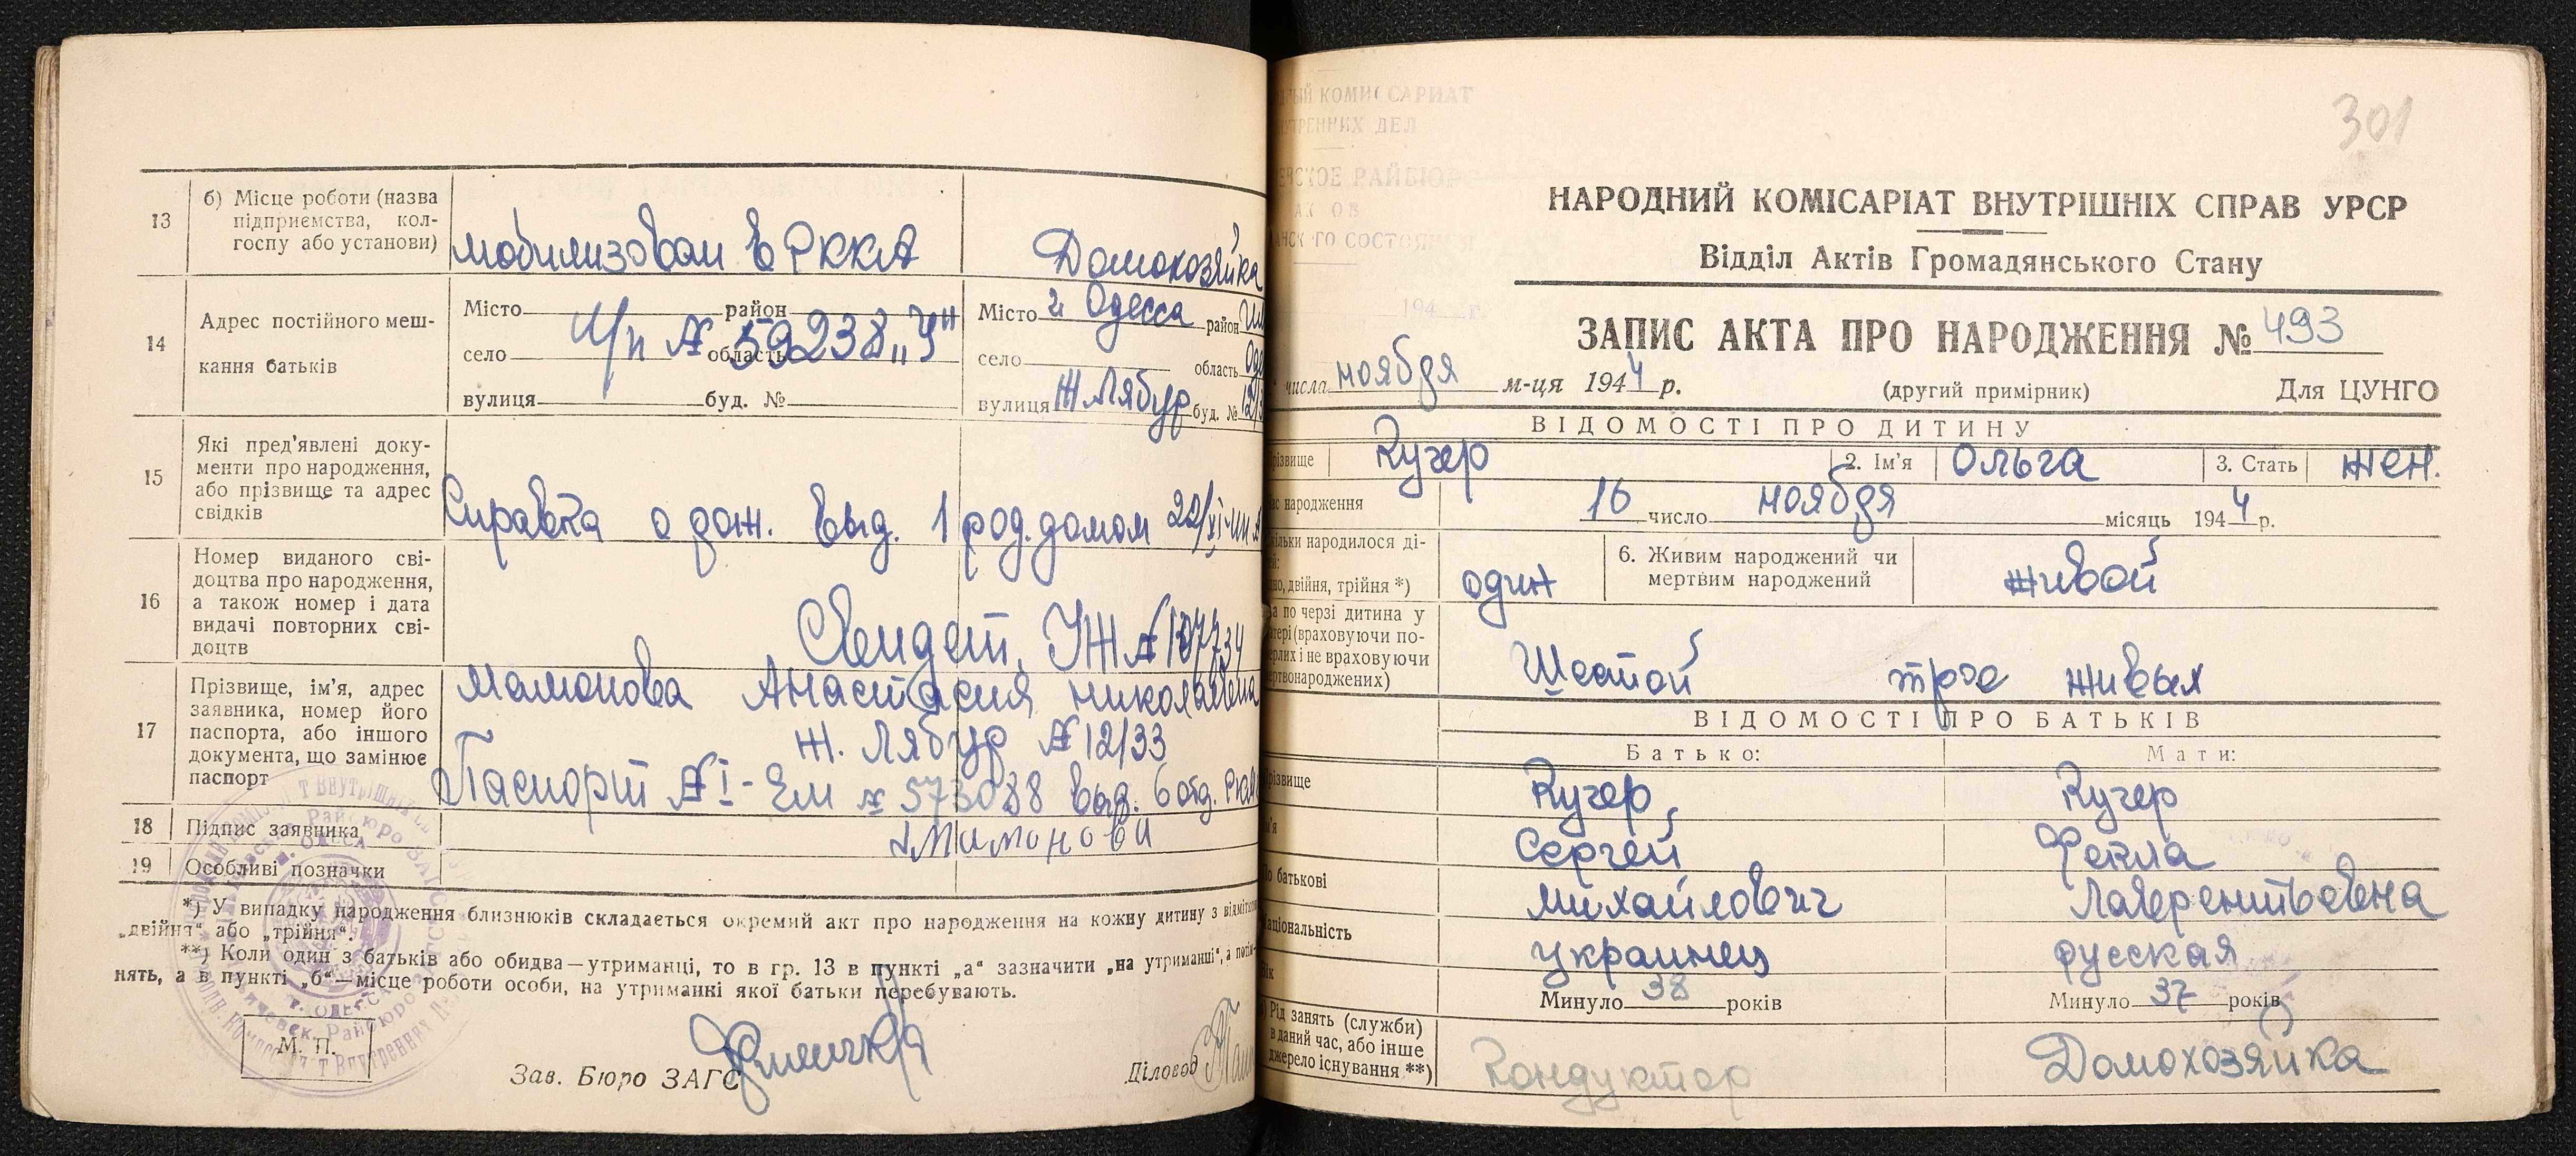 13
б) Місце роботи (назва
підприємства, кол-
госпу або установи)
мобилизован в РККА
Домохозяйка
14
Адрес постійного меш-
кання батьків
Місто район
п/п № 59238 „У"
село область
вулиця буд. №
Місто г. Одесса район
село область
вулиця Ж Лябур буд. №
15
Які пред'явлені доку-
менти про народження,
або прізвище та адрес
свідків
Справка о рож. выд. 1 род. домом 22/XI
16
Номер виданого сві-
доцтва про народження,
а також номер і дата
видачі повторних сві-
доцтв
Свидет. УЖ №
17
Прізвище, ім'я, адрес
заявника, номер його
паспорта, або іншого
документа, що замінює
паспорт
Мамонова Анастасия Николаевна
Ж. Лябур № 12/33
Паспорт № I-ЕМ № 573088 выд. 6 отд.
18
Підпис заявника
19
Особливі позначки
*) У випадку народження близнюків складається окремий акт про народження на кожну дитину з
„двійня" або „трійня".
**) Коли один з батьків або обидва—утриманці, то в гр. 13 в пункті „а" зазначити „на утриманні", а
нять, а в пункті „б"—місце роботи особи, на утриманні якої батьки перебувають.
М. П.
Зав. Бюро ЗАГС
Діловод
301
НАРОДНИЙ КОМІСАРІАТ ВНУТРІШНІХ СПРАВ УРСР
Відділ Актів Громадянського Стану
ЗАПИС АКТА ПРО НАРОДЖЕННЯ № 493
числа ноября м-ця 1944 р. (другий примірник) Для ЦУНГО
ВІДОМОСТІ ПРО ДИТИНУ
різвище Кучер 2. Ім'я Ольга 3. Стать жен.
народження 16 число ноября місяць 1944 р.
ільки народилося ді-
но, двійня, трійня *)
один
6. Живим народжений чи
мертвим народжений
живой
а по черзі дитина у
тері (враховуючи по-
ерлих і не враховуючи
ертвонароджених)
Шестой трое живых
ВІДОМОСТІ ПРО БАТЬКІВ
Батько: Мати:
різвище Кучер Кучер
м'я Сергей Фекла
о батькові Михайлович Лаврентьевна
аціональність украинец русская
ік Минуло 38 років Минуло 37 років
Рід занять (служби)
в даний час, або інше
джерело існування **)
Кондуктор Домохозяйка